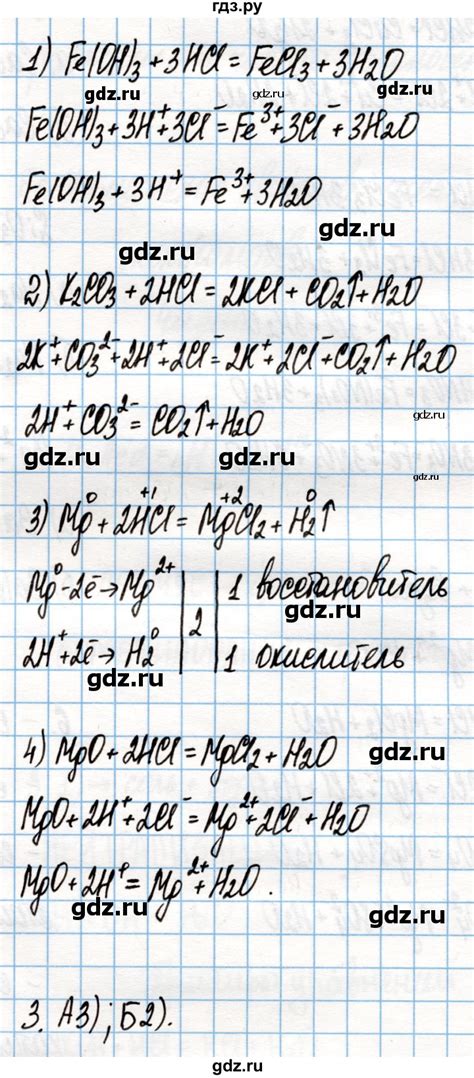 гдз.ру
1) Fe(OH)₃ + 3HCl = FeCl₃ + 3H₂O
gdz.ru gdz.ru
Fe(OH)₃ + 3H⁺ + 3Cl⁻ = Fe³⁺ + 3Cl⁻ + 3H₂O
Fe(OH)₃ + 3H⁺ = Fe³⁺ + 3H₂O
gdz.ru
gdz.ru
2) K₂CO₃ + 2HCl = 2KCl + CO₂↑ + H₂O
gdz.ru
2K⁺ + CO₃²⁻ + 2H⁺ + 2Cl⁻ = 2K⁺ + 2Cl⁻ + CO₂↑ + H₂O
gdz.ru
2H⁺ + CO₃²⁻ = CO₂↑ + H₂O
gdz.ru gdz.ru
3) Mg⁰ + 2H⁺¹Cl = Mg⁺²Cl₂ + H₂⁰↑
gdz.ru
Mg⁰ - 2ē → Mg²⁺ | 2 | 1 восстановитель
gdz.ru
2H⁺ + 2ē → H₂⁰ | 1 окислитель
gdz.ru
4) MgO + 2HCl = MgCl₂ + H₂O
gdz.ru
gdz.ru
MgO + 2H⁺ + 2Cl⁻ = Mg²⁺ + 2Cl⁻ + H₂O
MgO + 2H⁺ = Mg²⁺ + H₂O.
gdz.ru
gdz.ru
3. А3); Б2).
gdz.ru
gdz.ru